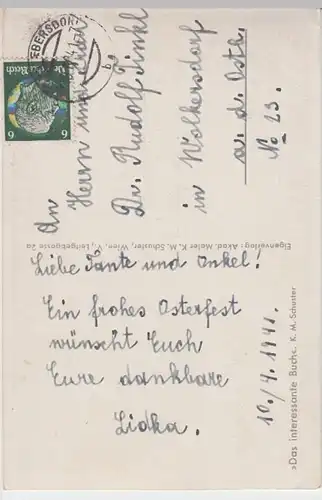 EBERSDORF
Deutsches Reich
6 6
An
Herrn und Frau
Dr. Rudolf Finkl
in Wolkersdorf
a. d. Ostb.
No 23.
Eigenverlag: Akad. Maler K. M. Schuster, Wien, V., Leitgebgasse 2a
Liebe Tante und Onkel!
Ein frohes Osterfest
wünscht Euch
Eure dankbare
Lidka.
10./4. 1941.
»Das interessante Buch«. K. M. Schuster